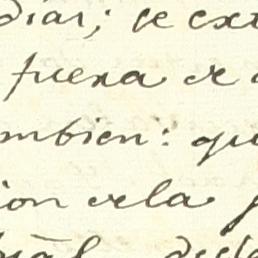 dias; se ext
fuera de
mbien: qu
ion de la